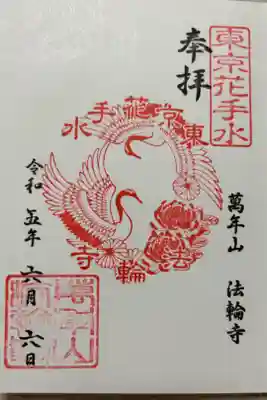 東京花手水
奉拝
東京花手水
法輪寺
萬年山 法輪寺
令和五年 六月 六日